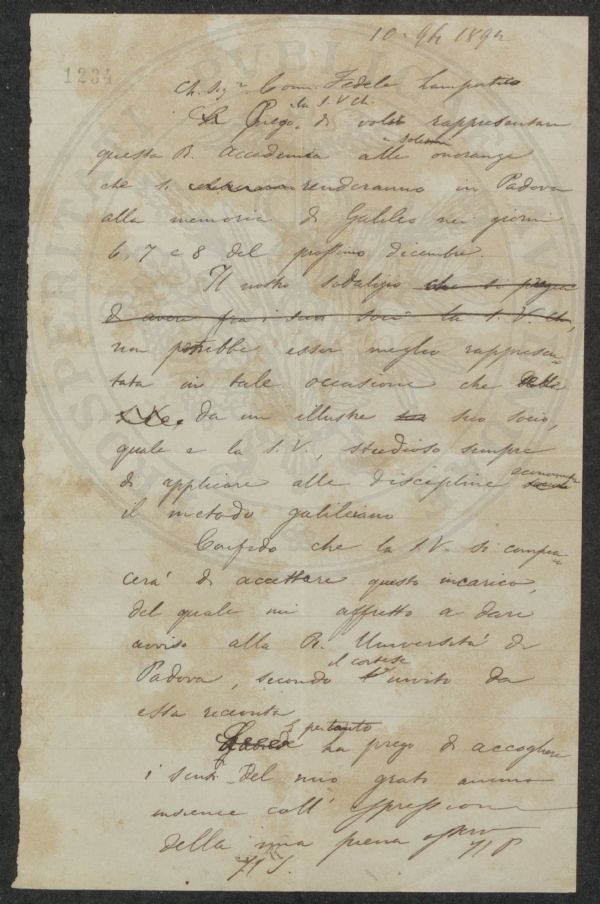 10 9b 1892
1234
Ch. Sigr Com. Fedele Lampertico
la S. V. Ch.
Prego di voler rappresentare
solenni
questa R. Accademia alle onoranze
che si renderanno in Padova
alla memoria di Galileo nei giorni
6, 7 e 8 del prossimo dicembre.
Il nostro sodalizio che si pregia
di avere fra i suoi soci la S. V. Ch,
non potrebbe esser meglio rappresen-
tata in tale occasione che dalla
da un illustre suo socio,
quale è la S. V., studioso sempre
economiche
di applicare alle discipline sociali
il metodo galileiano
Confido che la S. V. si compia-
cerà di accettare questo incarico,
del quale mi affretto a dare
avviso alla R. Università di
il cortese
Padova, secondo l'invito da
essa ricevuta
E pertanto
la prego di accogliere
i sensi del mio grato animo
insieme coll' espressione
della mia piena